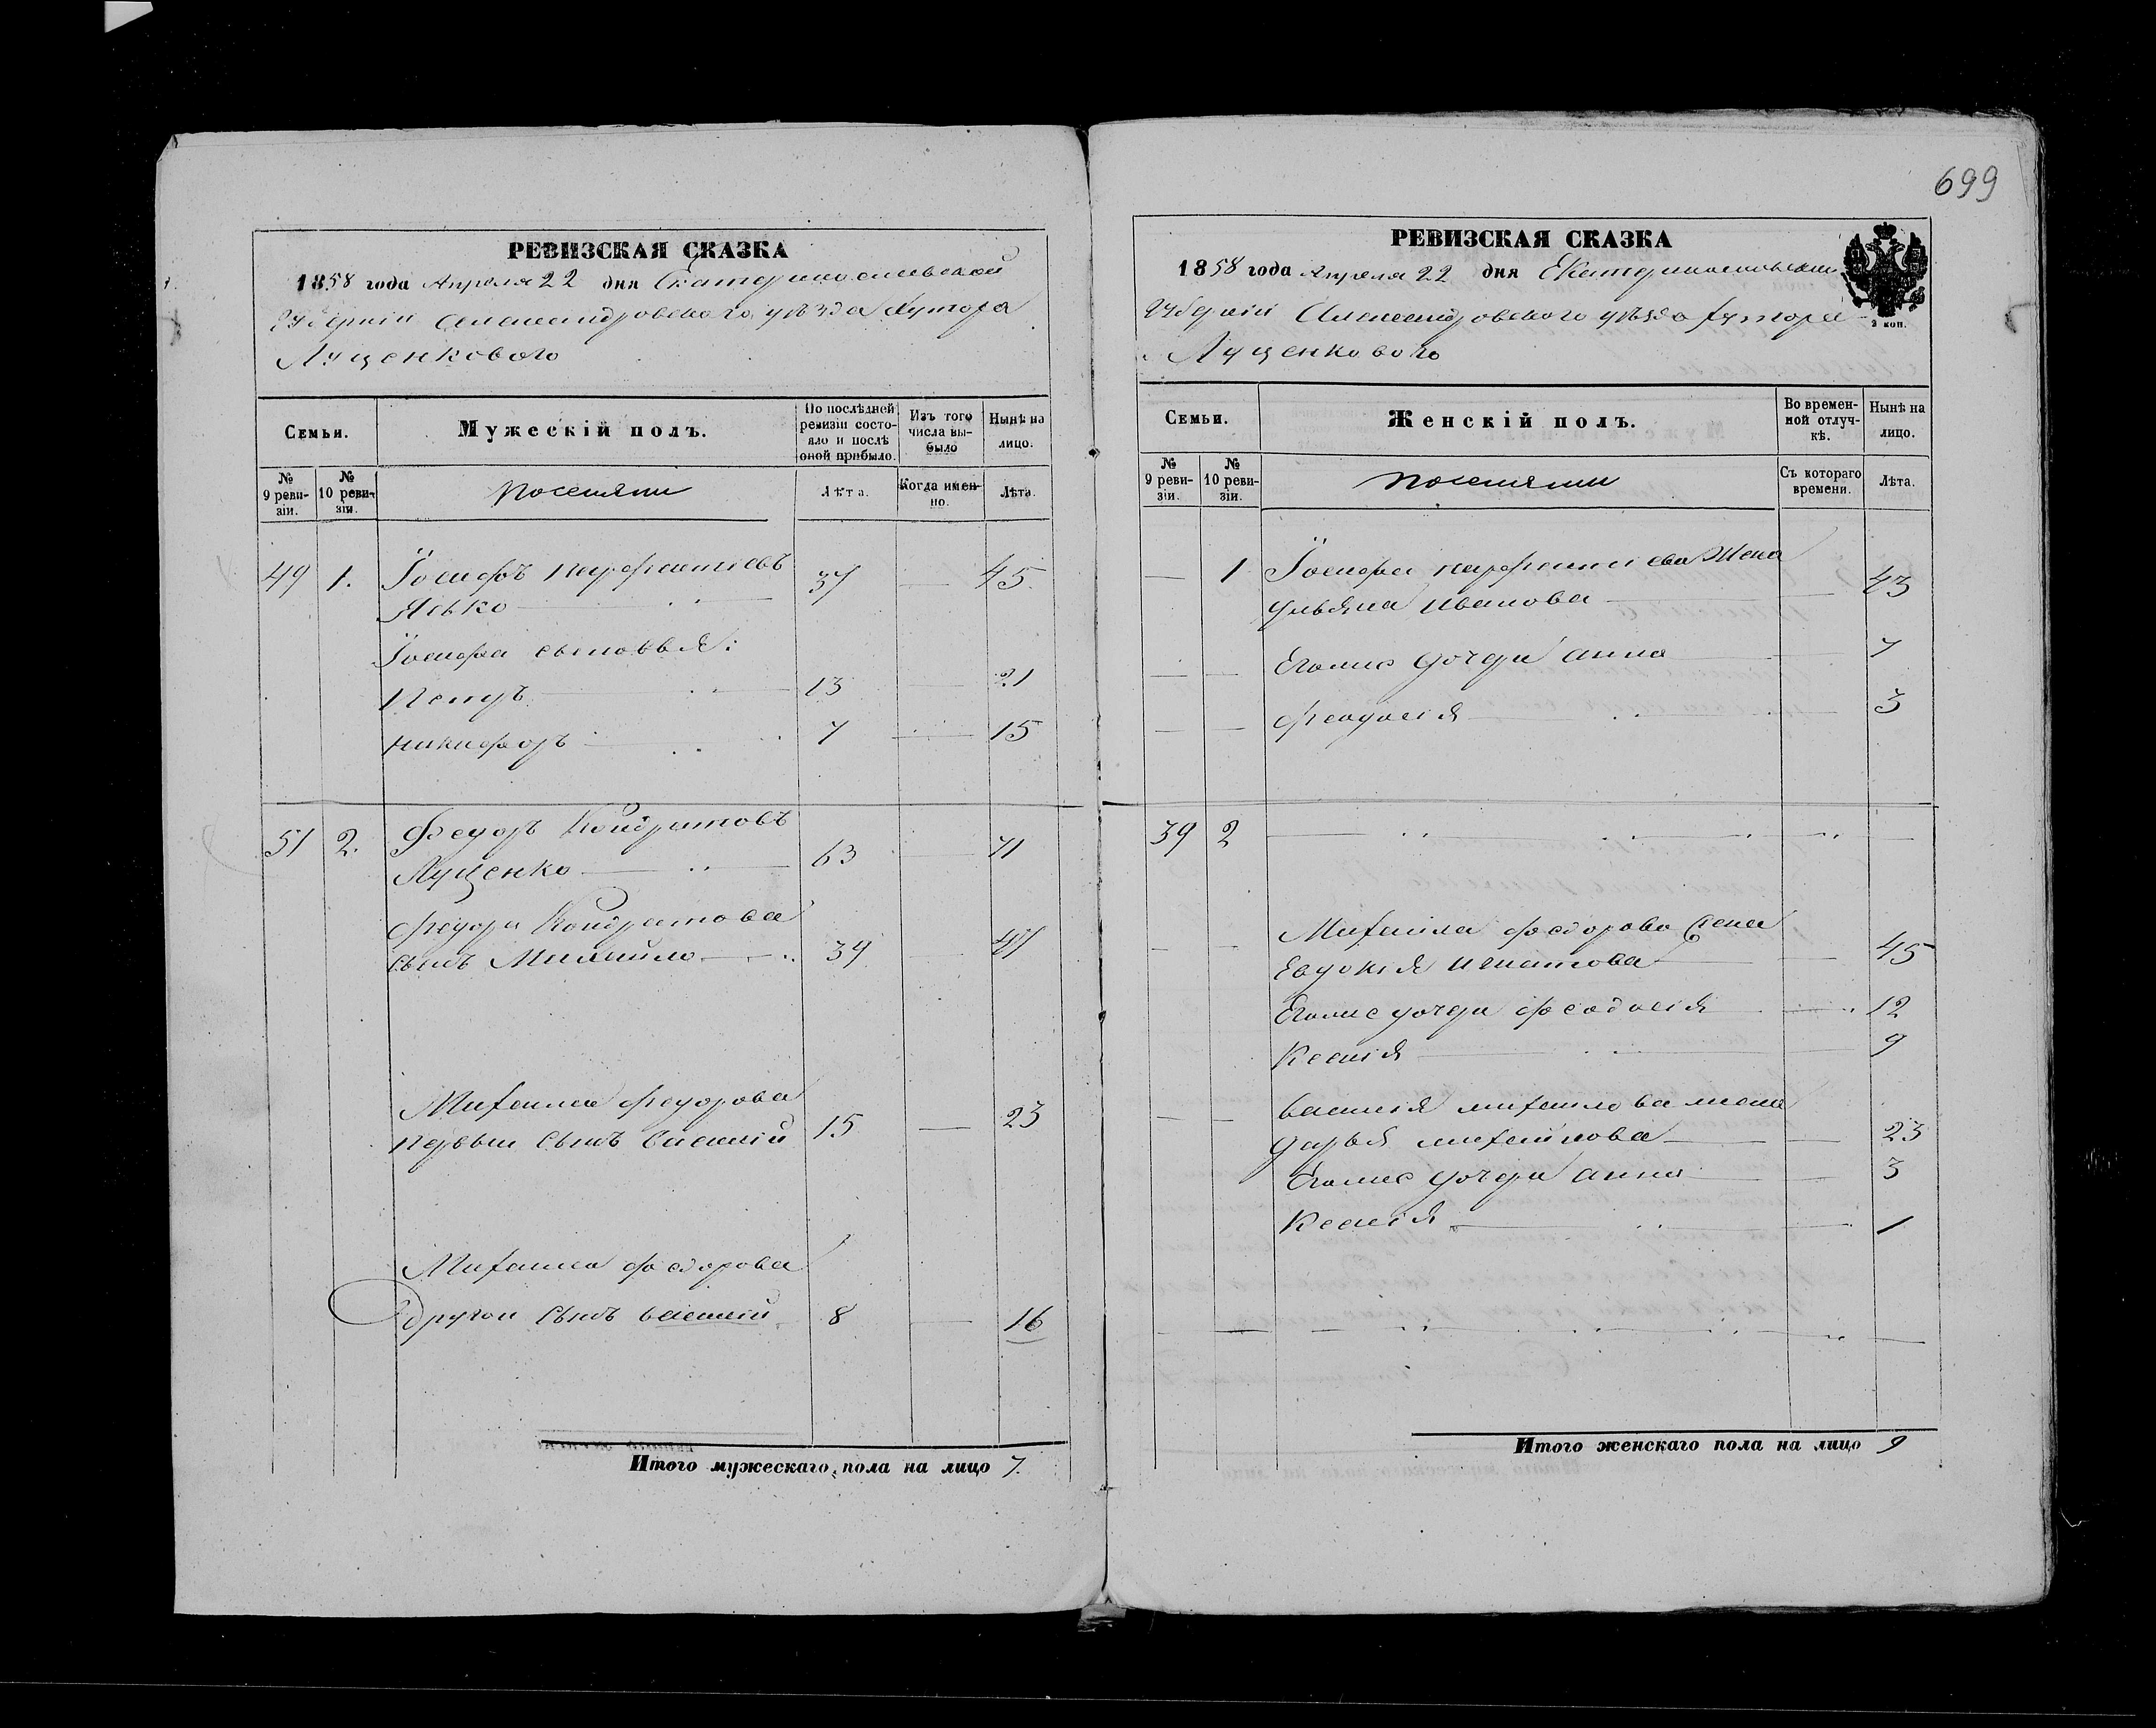 699
РЕВИЗСКАЯ СКАЗКА
1858 года Апреля 22 дня Екатеринославской
Губернии Александровского уѣзда Хутора
Лущенкового
Семьи.
Мужескій полъ.
По послѣдней ревизіи состояло и послѣ оной прибыло.
Изъ того числа выбыло
Нынѣ на лицо.
№ 9 ревизіи.
№ 10 ревизіи.
Поселяни
Лѣта.
Когда именно.
Лѣта.
49 1. Іосифъ
Яцько 37 45
Іосифа сыновья:
Петръ 13 21
Никифоръ 7 15
51 2. Федоръ Кондратовъ
Лущенко 63 71
Федора Кондратова
сынъ Михайло 39 47
Михаила Федорова
первый сынъ Василій 15 23
Михаила Федорова
другой сынъ Василій 8 16
Итого мужескаго пола на лицо 7.
РЕВИЗСКАЯ СКАЗКА
1858 года Апреля 22 дня Екатеринославской
Губерніи Александровского уѣзда Хутора
Лущенкового
2 коп.
Семьи.
Женскій полъ.
Во временной отлучкѣ.
Нынѣ на лицо.
№ 9 ревизіи.
№ 10 ревизіи.
Поселяни
Съ котораго времени.
Лѣта.
1 Іосифа Жена
Ульяна Иванова 43
Его же дочери Анна 7
Феодосія 3
39 2
Михаила Федорова жена
Евдокія Игнатова 45
Его же дочери Феодосія 12
Ксенія 9
Василія Михайлова жена
Дарья Михайлова 23
Его же дочери Анна 3
Ксенія 1
Итого женскаго пола на лицо 9